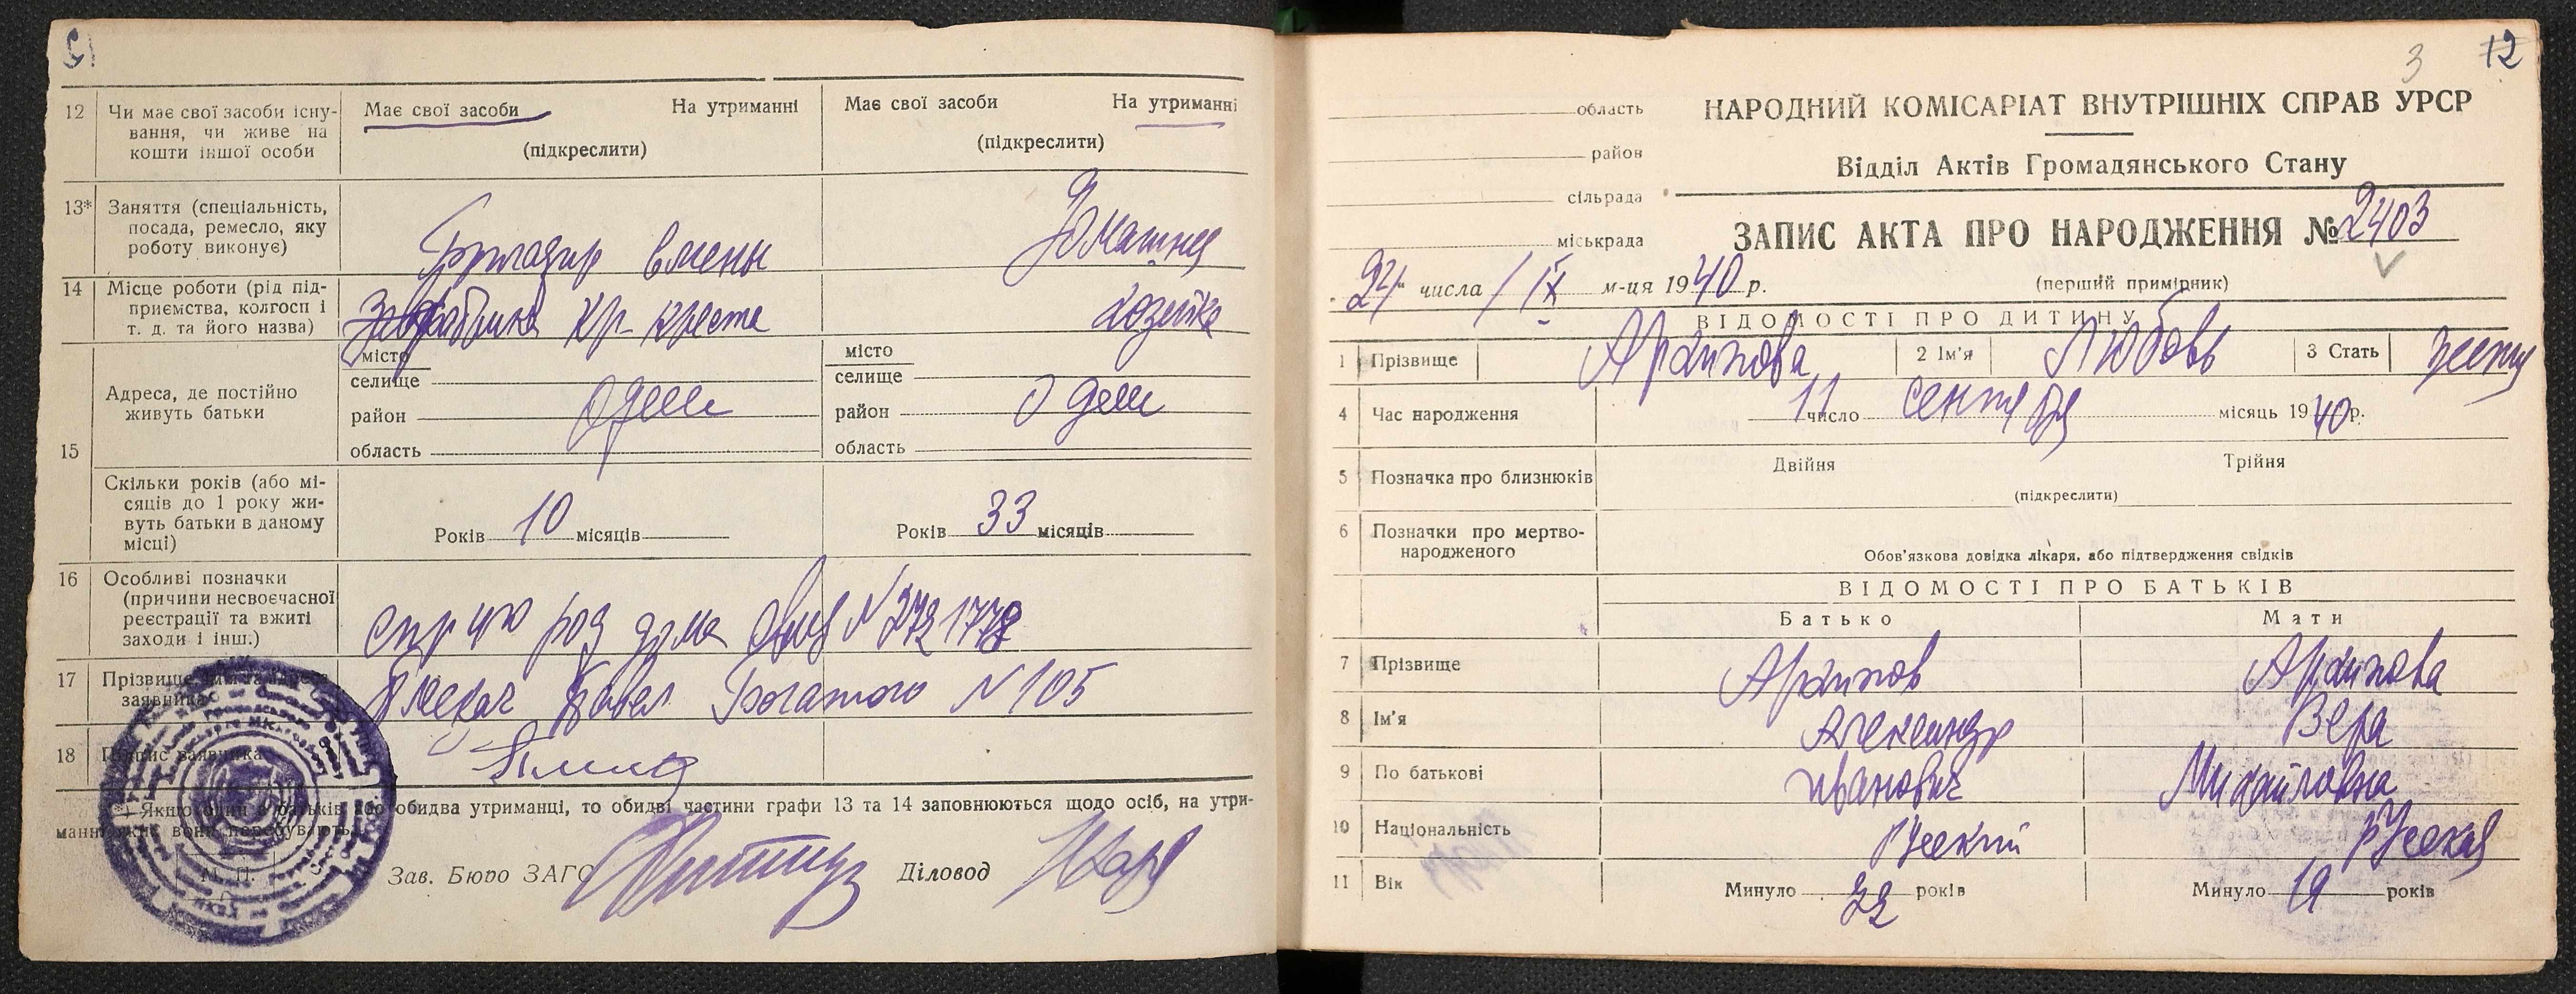 12 Чи має свої засоби існу-
вання, чи живе на
кошти іншої особи
Має свої засоби На утриманні
(підкреслити)
Має свої засоби На утриманні
(підкреслити)
13* Заняття (спеціальність,
посада, ремесло, яку
роботу виконує)
Бригадир смены
Домашняя
14 Місце роботи (рід під-
приємства, колгосп і
т. д. та його назва)
фабрика кр креста
хозяйка
15 Адреса, де постійно
живуть батьки
місто
селище
район Одесса
область
місто
селище
район Одесса
область
Скільки років (або мі-
сяців до 1 року жи-
вуть батьки в даному
місці)
Років 10 місяців
Років 33 місяців
16 Особливі позначки
(причини несвоєчасної
реєстрації та вжиті
заходи і інш.)
род дома N 1778
17 Прізвище
заявника
Павел Богатого N 105
18 Підпис заявника
*) Якщо один з батьків або обидва утриманці, то обидві частини графи 13 та 14 заповнюються щодо осіб, на утри-
манні яких вони перебувають.
М. П.
Зав. Бюро ЗАГС
Діловод
3 12
область
район
сільрада
міськрада
НАРОДНИЙ КОМІСАРІАТ ВНУТРІШНІХ СПРАВ УРСР
Відділ Актів Громадянського Стану
ЗАПИС АКТА ПРО НАРОДЖЕННЯ № 2403
числа IX м-ця 1940 р. (перший примірник)
ВІДОМОСТІ ПРО ДИТИНУ
1 Прізвище Архипова 2 Ім'я Любовь 3 Стать женск
4 Час народження 11 число сентября місяць 1940 р.
5 Позначка про близнюків Двійня Трійня
(підкреслити)
6 Позначки про мертво-
народженого
Обов'язкова довідка лікаря, або підтвердження свідків
ВІДОМОСТІ ПРО БАТЬКІВ
Батько Мати
7 Прізвище Архипов Архипова
8 Ім'я Александр Вера
9 По батькові Иванович Михайловна
10 Національність Русский Русская
11 Вік Минуло років Минуло 19 років